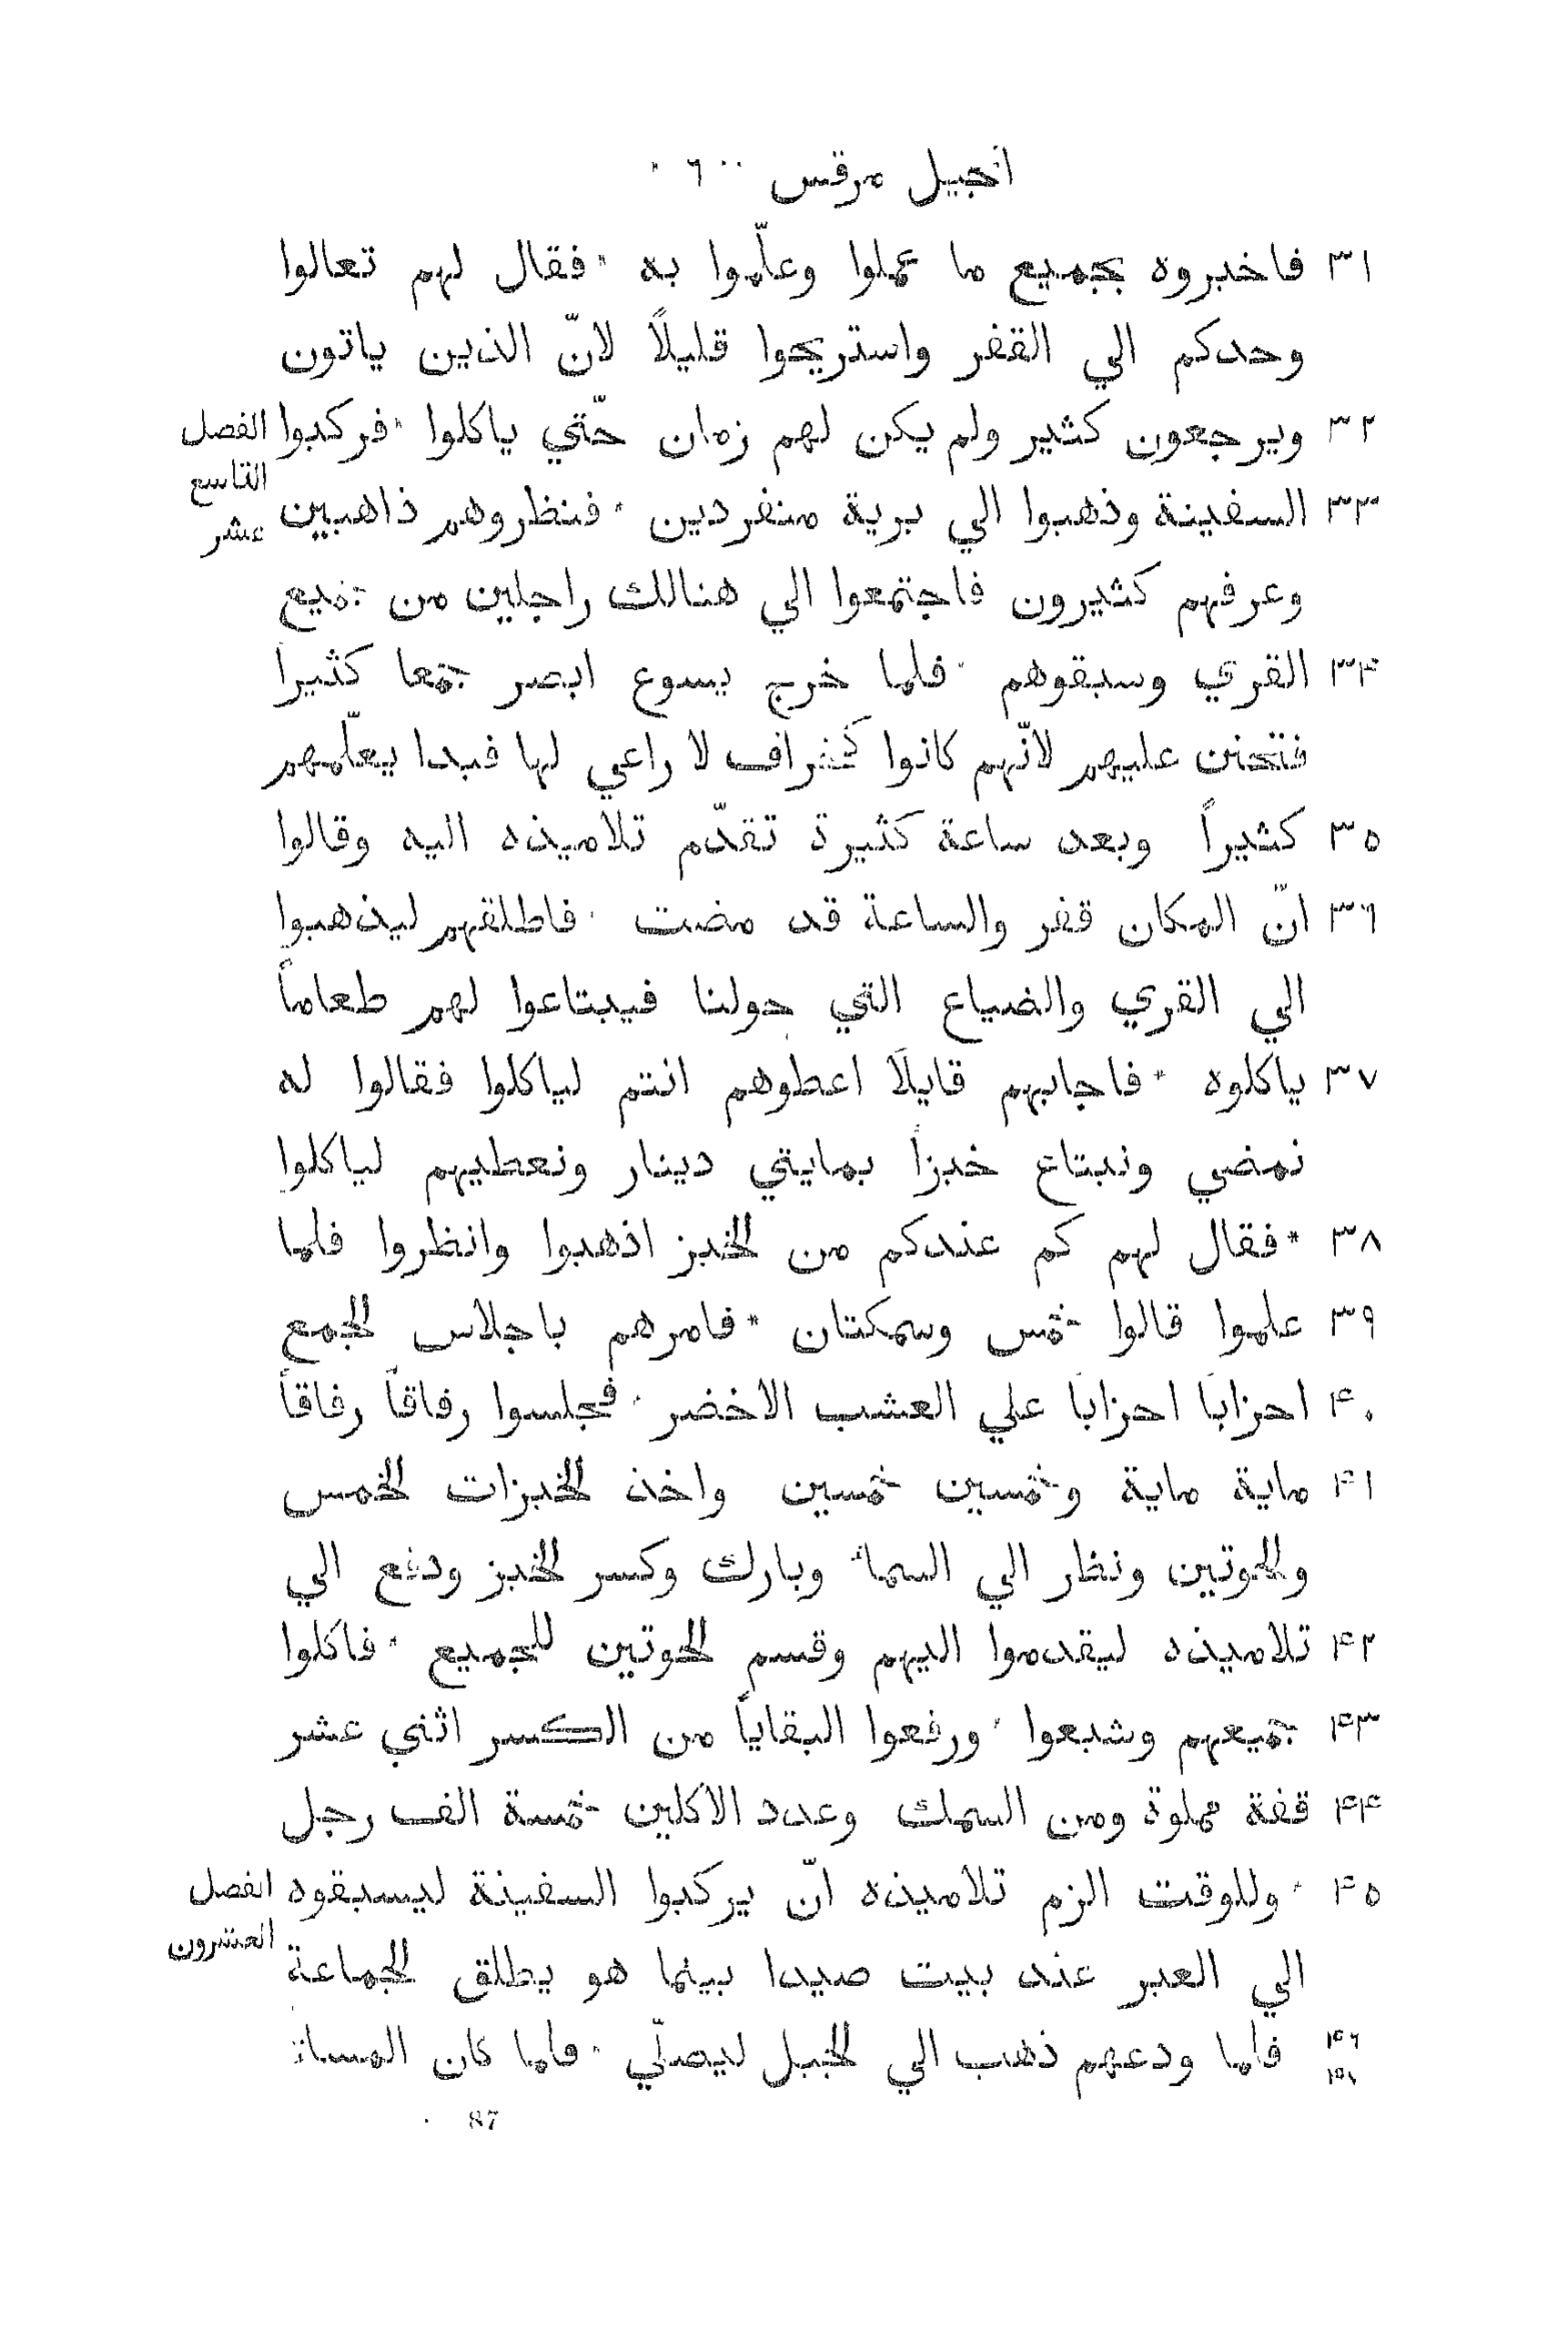 انجيل مرقس ٦ *
٣١ فاخبروه بجميع ما عملوا وعلّموا به * فقال لهم تعالوا
وحدكم الي القفر واستريحوا قليلاً لانّ الذين ياتون
٣٢ ويرجعون كثير ولم يكن لهم زمان حتّي ياكلوا * فركبوا الفصل
التاسع
٣٣ السفينة وذهبوا الي برية منفردين * فنظروهم ذاهبين عشر
وعرفهم كثيرون فاجتمعوا الي هنالك راجلين من جميع
٣٤ القري وسبقوهم * فلما خرج يسوع ابصر جمعا كثيراً
فتحنن عليهم لانّهم كانوا كخراف لا راعي لها فبدا يعلّمهم
٣٥ كثيراً وبعد ساعة كثيرة تقدّم تلاميذه اليه وقالوا
٣٦ انّ المكان قفر والساعة قد مضت * فاطلقهم ليذهبوا
الي القري والضياع التي حولنا فيبتاعوا لهم طعاماً
٣٧ ياكلوه * فاجابهم قايلاً اعطوهم انتم لياكلوا فقالوا له
نمضي ونبتاع خبزاً بمايتي دينار ونعطيهم لياكلوا
٣٨ * فقال لهم كم عندكم من الخبز اذهبوا وانظروا فلما
٣٩ علموا قالوا خمس وسمكتان * فامرهم باجلاس الجمع
٤٠ احزابًا احزابًا علي العشب الاخضر * فجلسوا رفاقاً رفاقاً
٤١ ماية ماية وخمسين خمسين واخذ الخبزات الخمس
والحوتين ونظر الي السما وبارك وكسر الخبز ودفع الي
٤٢ تلاميذه ليقدموا اليهم وقسم الحوتين للجميع * فاكلوا
٤٣ جميعهم وشبعوا * ورفعوا البقاياً من الكسر اثني عشر
٤٤ قفة مملوة ومن السمك وعدد الاكلين خمسة الف رجل
٤٥ * وللوقت الزم تلاميذه انّ يركبوا السفينة ليسبقوه الفصل
العشرون
الي العبر عند بيت صيدا بينما هو يطلق الجماعة
٤٦ ٤٧ فلما ودعهم ذهب الي الجبل ليصلّي * فلما كان المساء
87